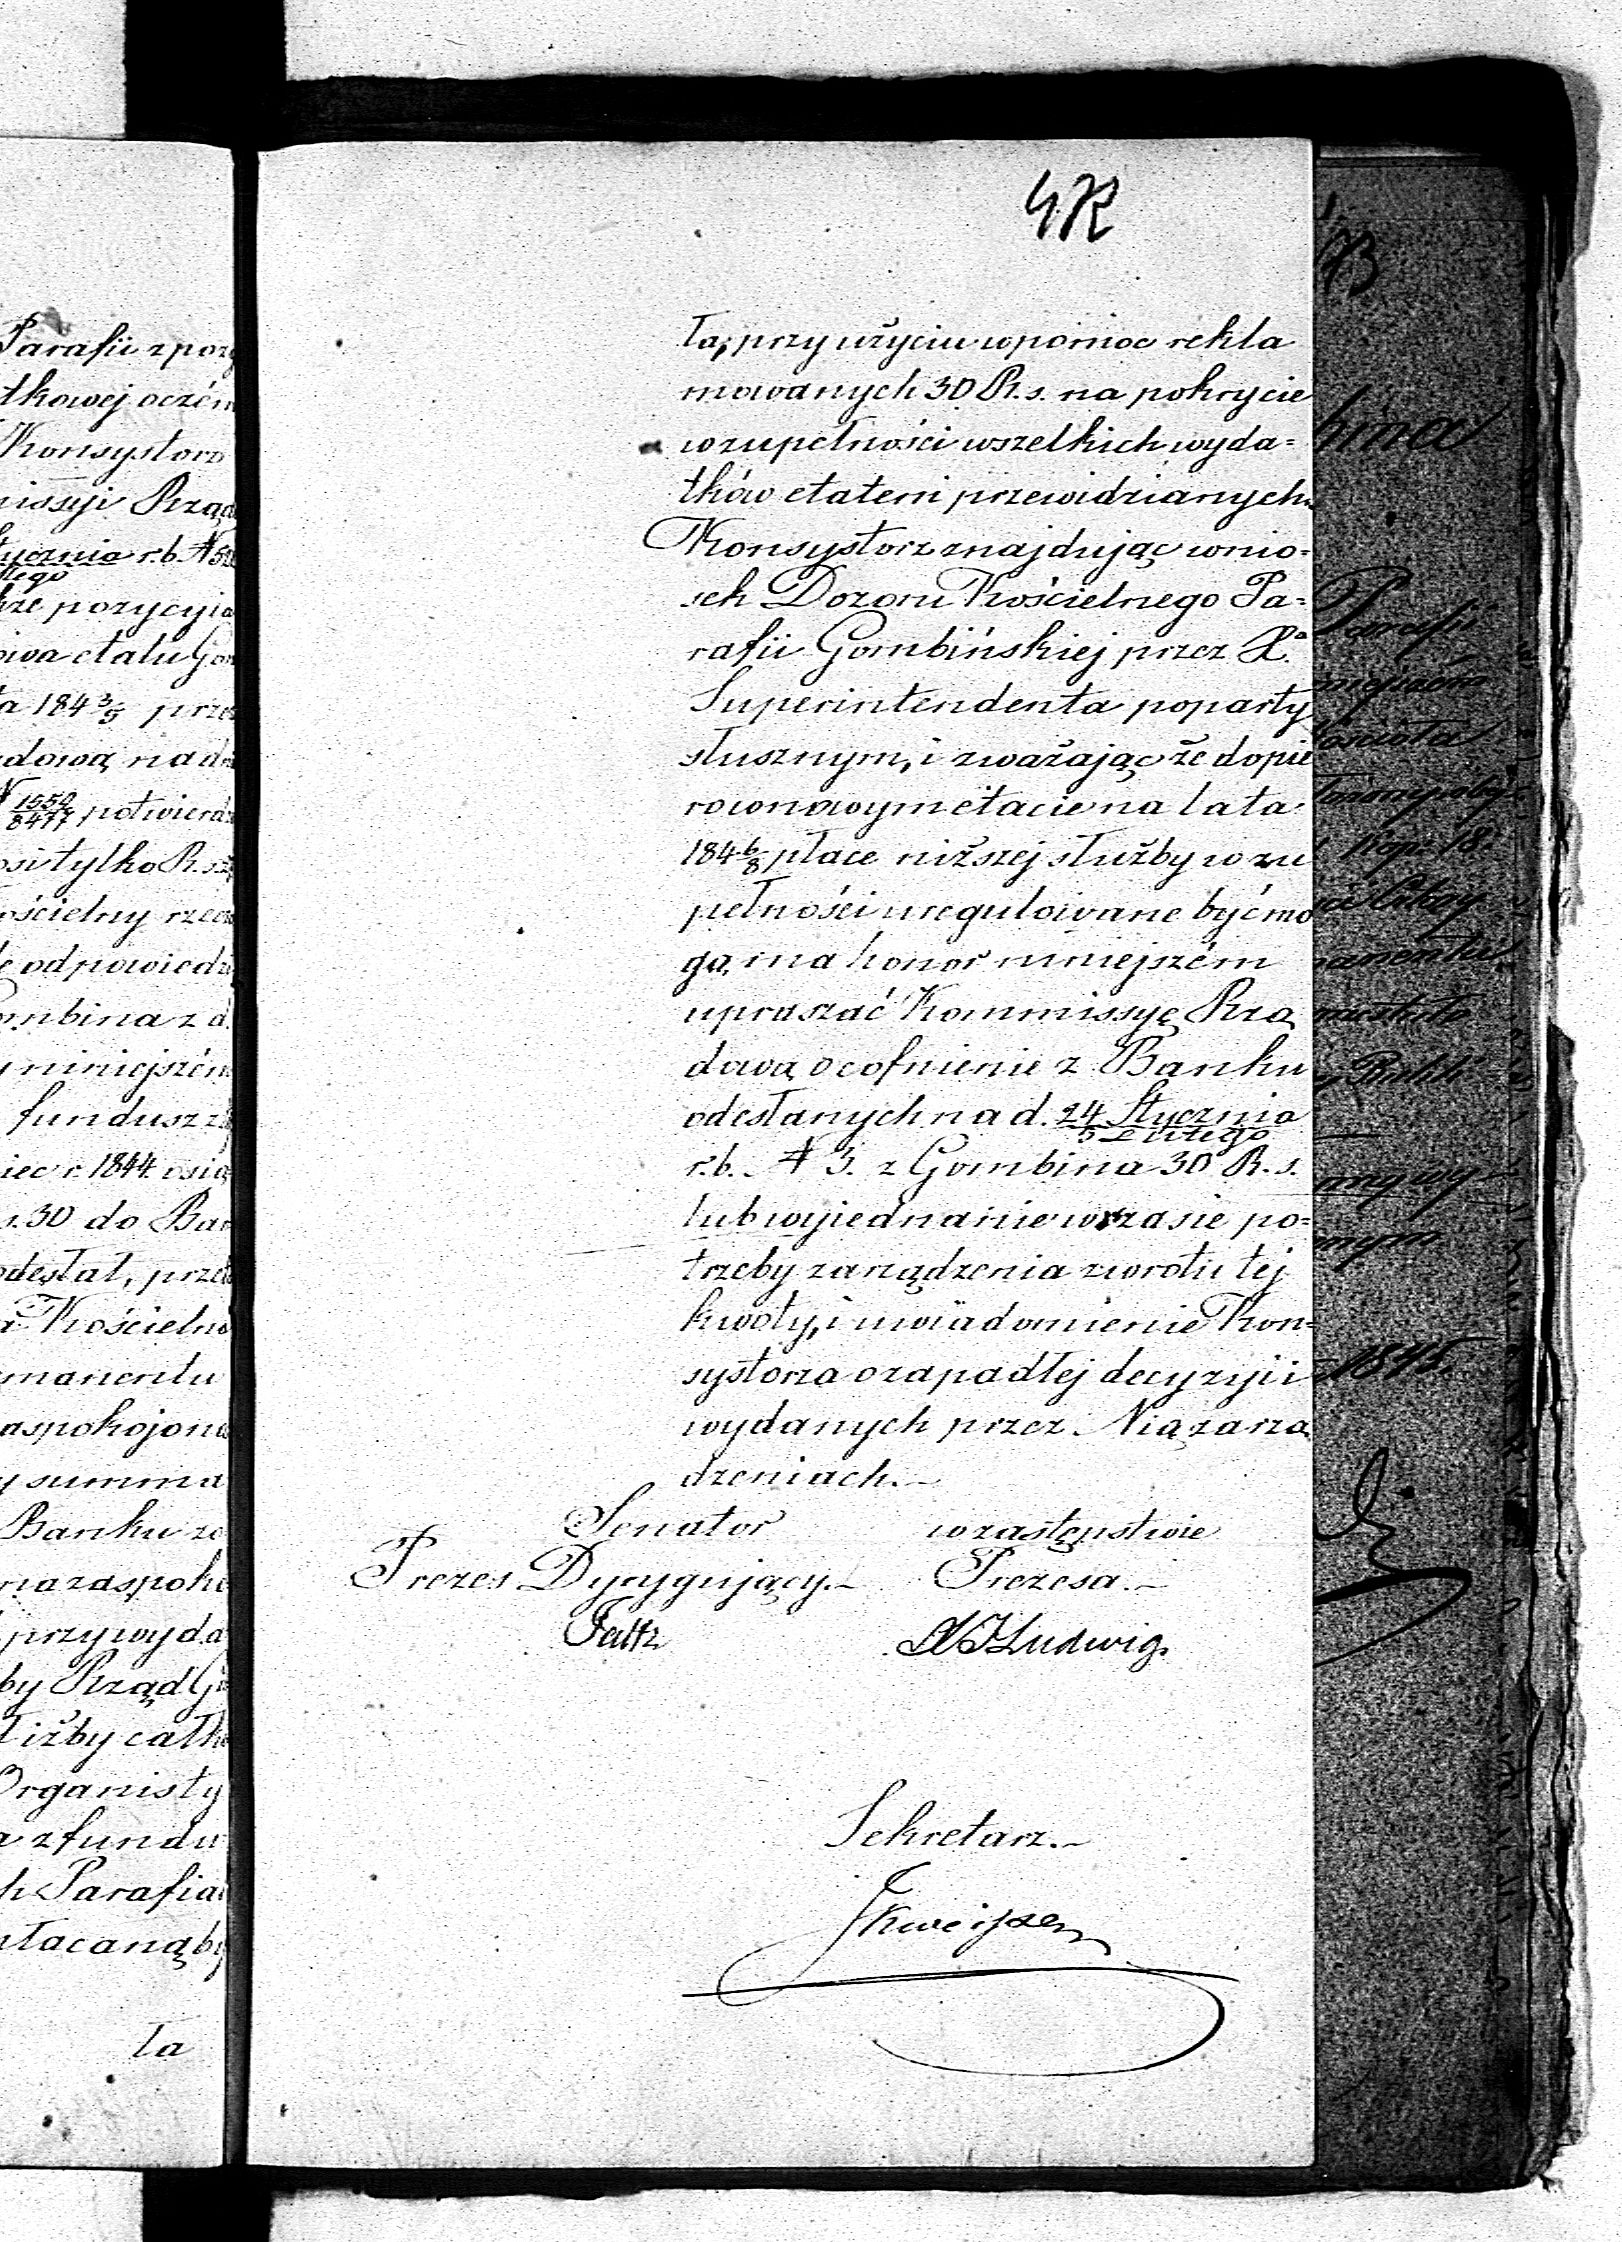 Parafii z pozy
tkowej o czém
Konsystorz
missyi Rząd
Stycznia r.b. N
tego
że pozycyia
etatu Gom
ta 184 3/5 prze
dową na d
N 1550/8477 potwierdz
osi tylko R.s.
ościelny rze
odpowiedz
ombina z d.
niniejszém
fundusz z
iec r. 1844 osią
s. 30 do Ban
odesłał, prze
Kościeln
manentu
aspokojon
y summa
Banku zo
na zaspoko
przy wyda
by Rząd G
służby całk
Organisty
a z fundu
h Parafia
płacaną by
ła
42
ła, przy użyciu w pomoc rekla
mowanych 30 R.s. na pokrycie
w zupełności wszelkich wyda=
tków etatem przewidzianych.
Konsystorz znajdując wnio=
sek Dozoru Kościelnego Pa=
rafii Gombińskiej przez X.a
Superintendenta poparty
słusznym, i zważając że dopie
ro w nowym etacie na lata
184 6/8 płace niższej służby w zu
pełności uregulowane być mo
gą, ma honor niniejszém
upraszać Kommissyę Rzą
dową o cofnienie z Banku
odesłanych na d. 24 Stycznia
5 Lutego
r.b. N 3. z Gombina 30 R.s.
lub wyjednanie w razie po=
trzeby zarządzenia zwrotu tej
kwoty, i uwiadomienie Kon=
systorza o zapadłej decyzyi i
wydanych przez Nią zarzą
dzeniach.
Senator w zastępstwie
Prezes Dyrygujący. Prezesa.
Faltz Ludwig
Sekretarz.
73
bina
Parafii
1845